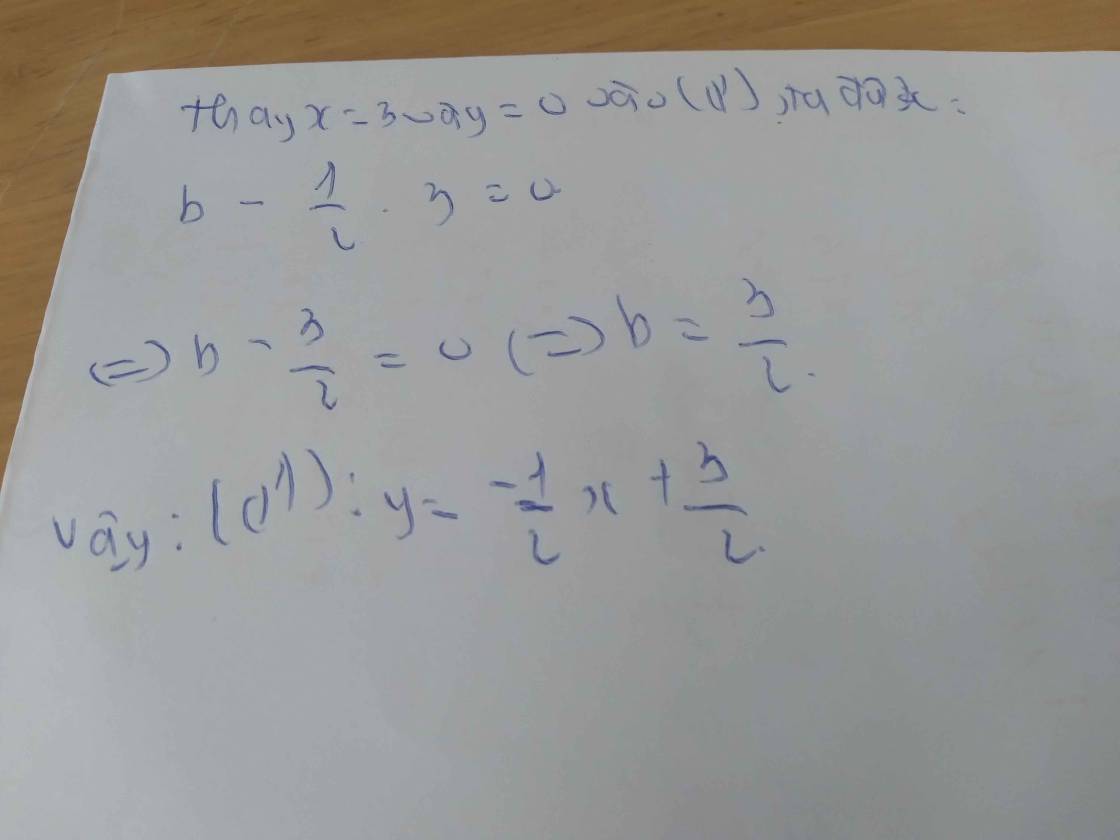 thay x = 3 và y = 0 vào (d'), ta được:
b - 1/2 . 3 = 0
<=> b - 3/2 = 0 <=> b = 3/2.
vậy: (d'): y = -1/2 x + 3/2.